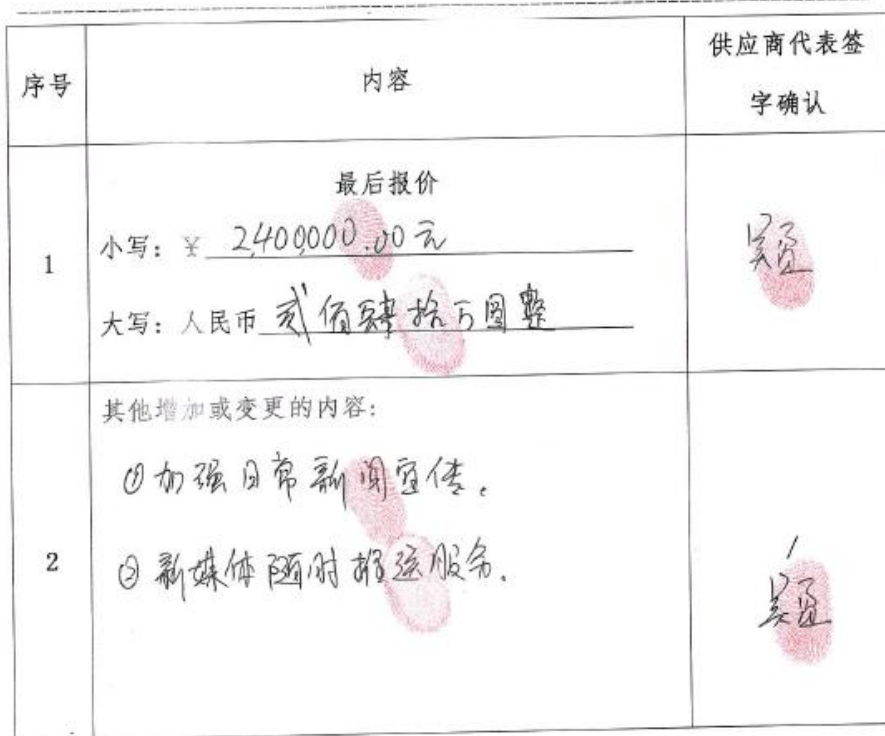 序号
内容
供应商代表签
字确认
1
最后报价
小写：￥ 2,400,000.00元
大写：人民币 贰佰肆拾万圆整
2
其他增加或变更的内容：
①加强日常新闻宣传。
②新媒体随时播送服务.